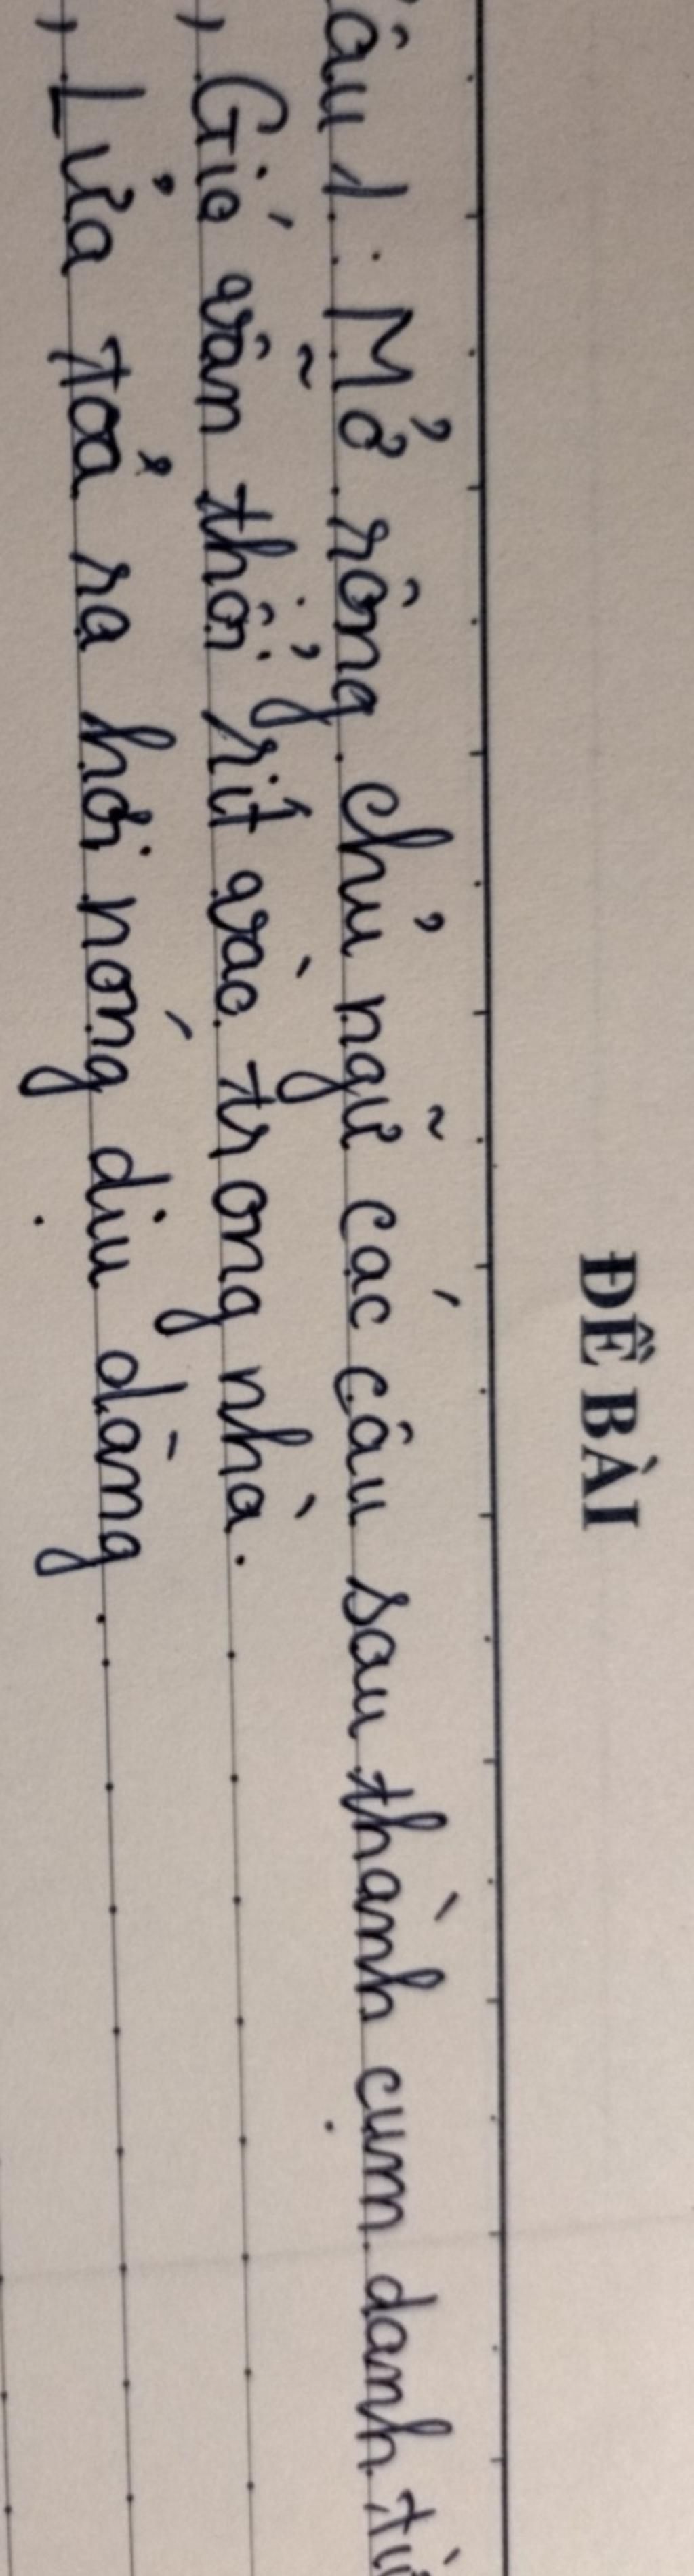 ĐỀ BÀI
âu 1: Mở rộng chủ ngữ các câu sau thành cụm danh từ
, Gió vẫn thổi rít vào trong nhà.
, Lửa toả ra hơi nóng dịu dàng.